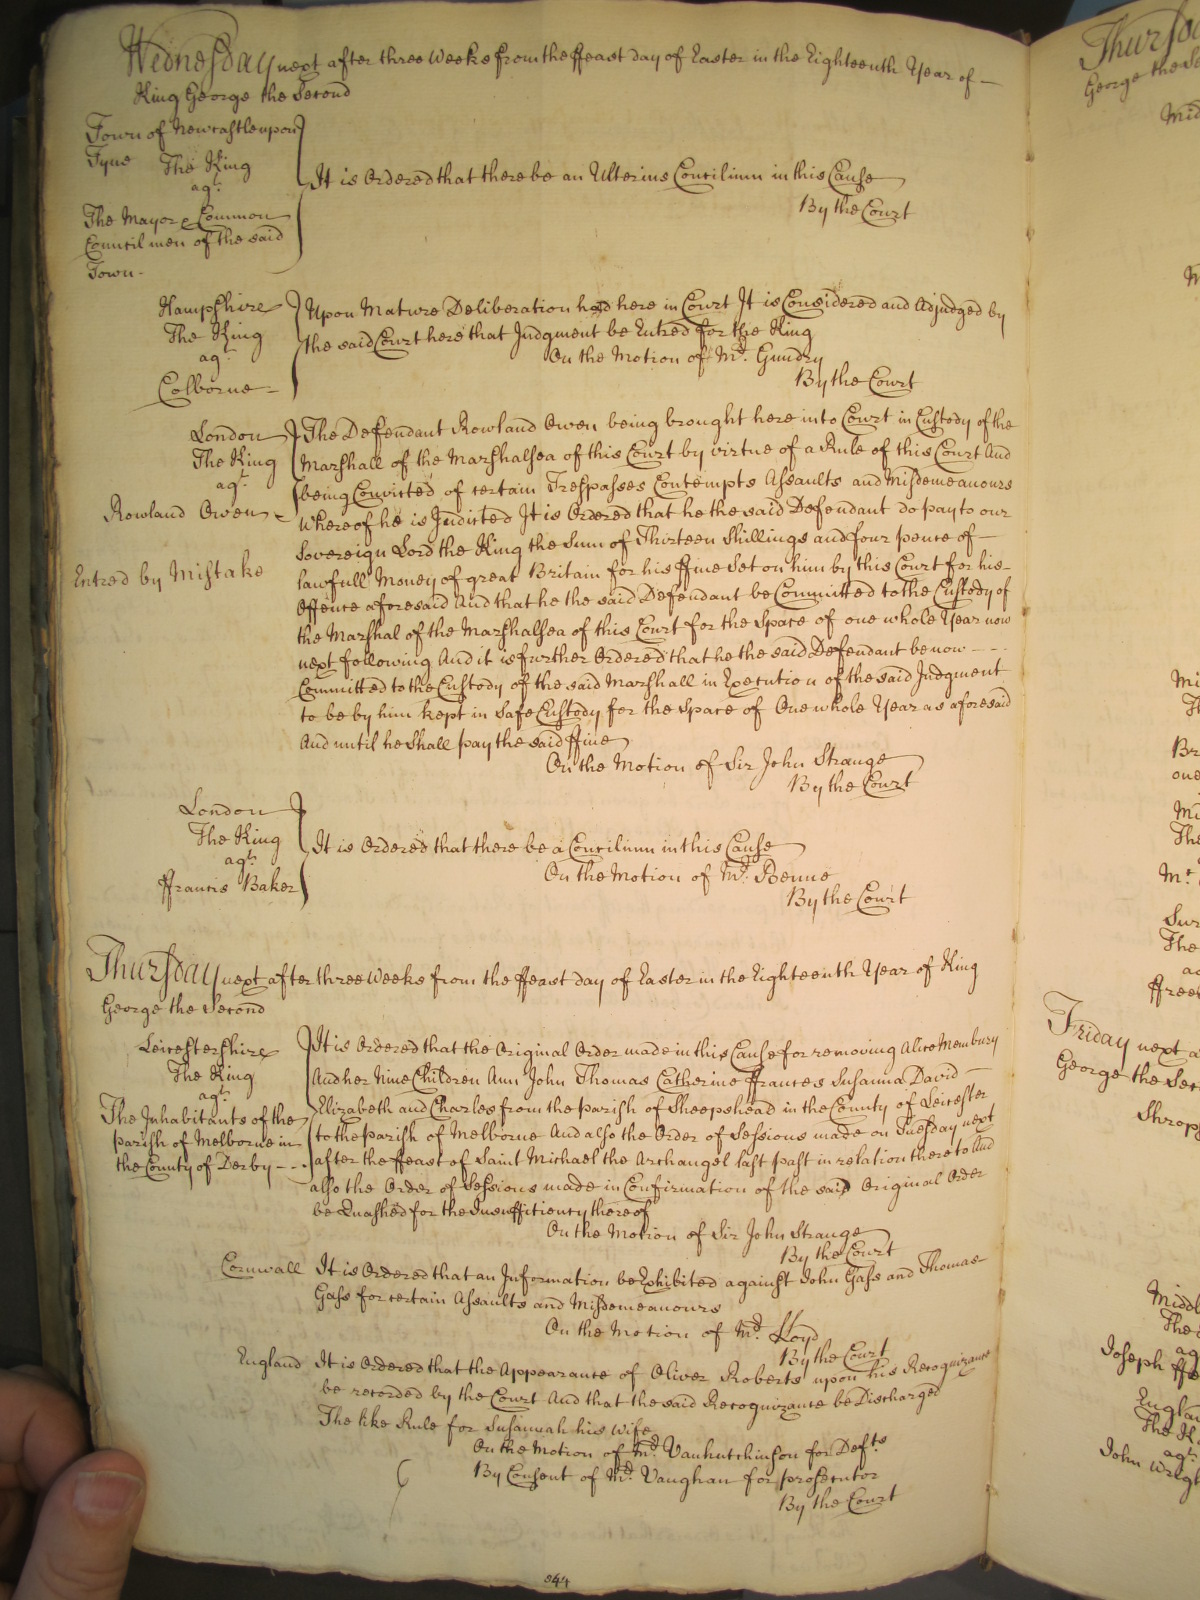 Wednesday next after three weeks from the ffeast day of Easter in the Eighteenth Year of —
King George the Second
Town of Newcastle upon
Tyne The King
agt.
The Mayor & Common
Council men of the said
Town -
It is Ordered that there be an Ulterius Concilium in this Cause
By the Court
Hampshire
The King
agt.
Colborne -
Upon Mature Deliberation had here in Court It is Considered and Adjudged by
the said Court here that Judgment be Entred for the King
On the Motion of Mr. Gundry
By the Court
London
The King
agt.
Rowland Owen -
Entred by Mistake
The Defendant Rowland Owen being brought here into Court in Custody of the
Marshall of the Marshalsea of this Court by virtue of a Rule of this Court And
being Convicted of certain Trespasses Contempts Assaults and Misdemeanours
whereof he is Indicted It is Ordered that he the said Defendant do pay to our
Sovereign Lord the King the Sum of Thirteen Shillings and four pence of —
lawfull Money of great Britain for his ffine Set on him by this Court for his -
Offence aforesaid And that he the said Defendant be Committed to the Custody of
the Marshal of the Marshalsea of this Court for the Space of one whole Year now
next following And it is further Ordered that he the said Defendant be now - - -
Committed to the Custody of the said Marshall in Execution of the said Judgment
to be by him kept in Safe Custody for the Space of One whole Year as aforesaid
And until he shall pay the said ffine
On the Motion of Sir John Strange
By the Court
London
The King
agt.
ffrancis Baker
It is Ordered that there be a Concilium in this Cause
On the Motion of Mr. Benne
By the Court
Thursday next after three weeks from the ffeast day of Easter in the Eighteenth Year of King
George the Second
Leicestershire
The King
agt.
The Inhabitants of the
parish of Melborne in
the County of Derby - -
It is Ordered that the Original Order made in this Cause for removing Alice Membury
And her Nine Children Ann John Thomas Catherine ffrances Susanna David —
Elizabeth and Charles from the parish of Sheepshead in the County of Leicester
to the parish of Melborne And also the Order of Sessions made on Tuesday next
after the ffeast of Saint Michael the Archangel last past in relation thereto And
also the Order of Sessions made in Confirmation of the said Original Order
be Quashed for the Insufficiency thereof
On the Motion of Sir John Strange
By the Court
Cornwall It is Ordered that an Information be Exhibited against John Gass and Thomas -
Gass for certain Assaults and Misdemeanours
On the Motion of Mr. Lloyd
By the Court
England It is Ordered that the Appearance of Oliver Roberts upon his Recognizance
be recorded by the Court And that the said Recognizance be Discharged
The like Rule for Susannah his Wife
On the Motion of Mr. Vanhutchinson for Defts.
By Consent of Mr. Vaughan for prosecutor
By the Court
544
George the Se
Friday next a
George the Sec
Shrop
Middl
The
ag
Joseph ffe
Englan
The K
agt.
John Wright